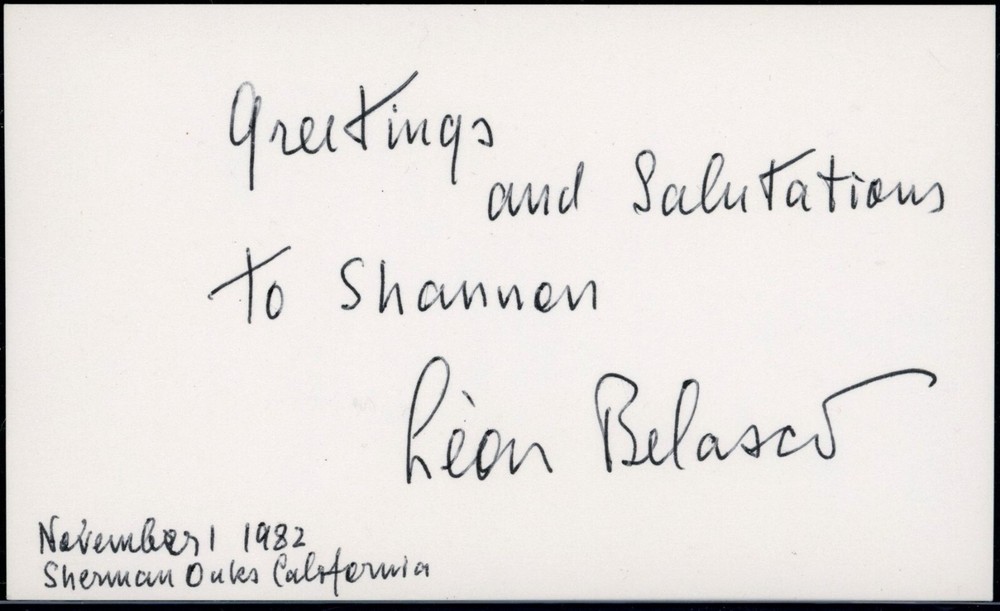 Greetings
and Salutations
to Shannon
Lèon Belasco
November 1 1982
Sherman Oaks California